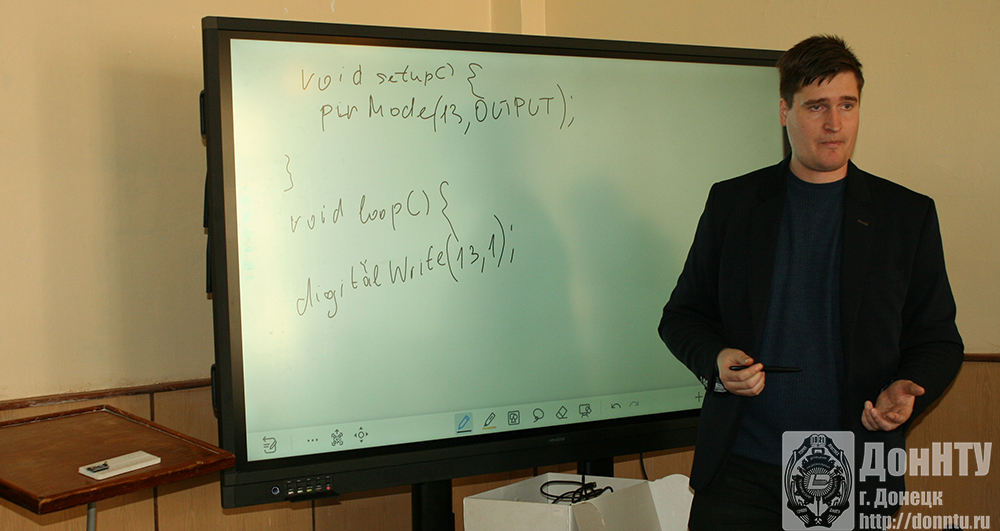 void setup() {
pinMode(13, OUTPUT);
}
void loop() {
digitalWrite(13,1);
1921
ДонНТУ
г. Донецк
http://donntu.ru